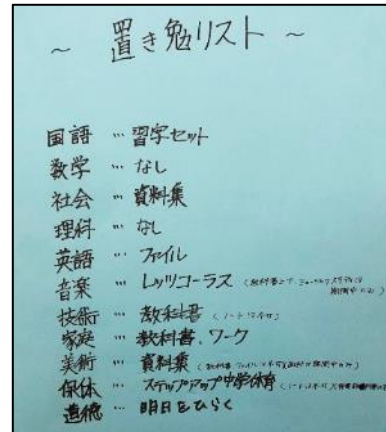 ～ 置き勉リスト ～
国語 … 習字セット
数学 … なし
社会 … 資料集
理科 … なし
英語 … ファイル
音楽 … レッツコーラス
技術 … 教科書 (ノートは不可)
家庭 … 教科書、ワーク
美術 … 資料集
保体 … ステップアップ中学体育
道徳 … 明日をひらく